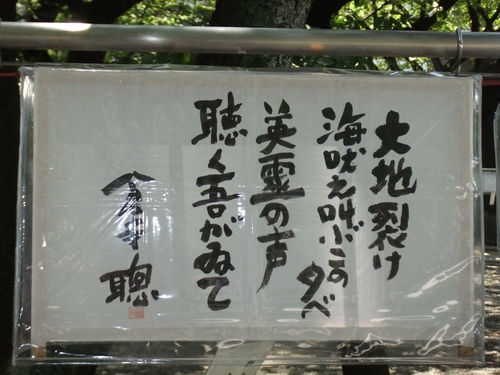 大地裂け
海吠え叫ぶこの夕べ
英霊の声
聴く吾がゐて
聰